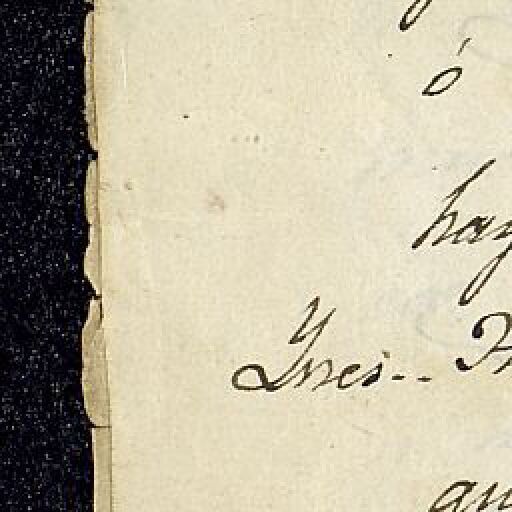 ó
hay
Ynes--
qu